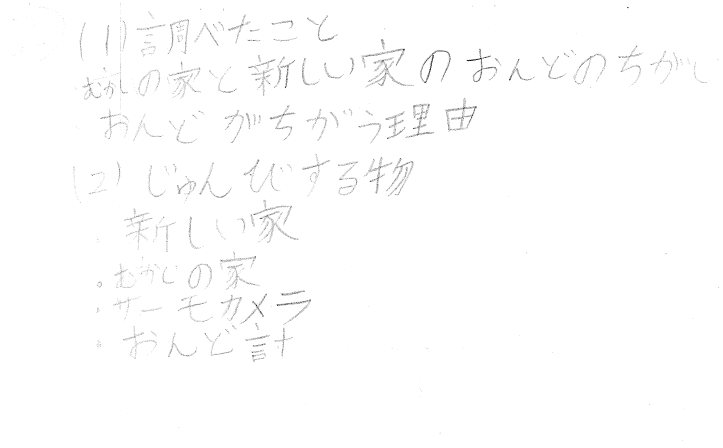 (1)調べたこと
むかしの家と新しい家のおんどのちがい
おんどがちがう理由
(2)じゅんびする物
・新しい家
・むかしの家
・サーモカメラ
・おんど計